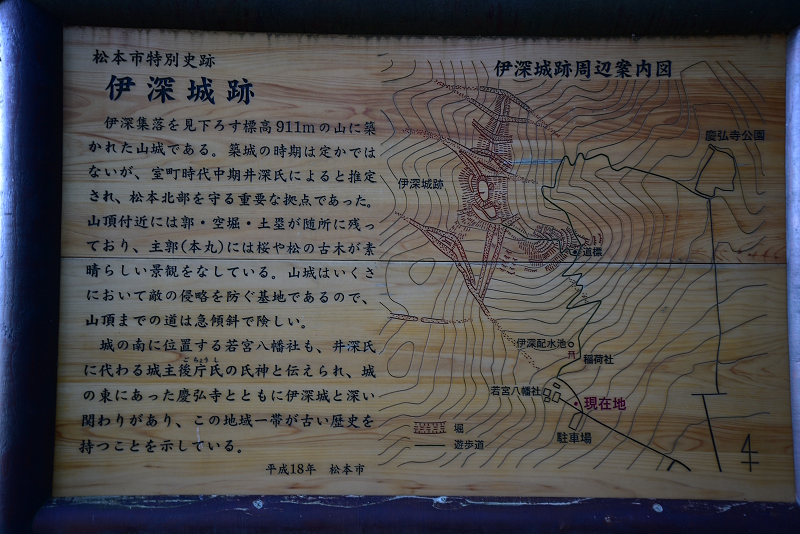 松本市特別史跡
伊深城跡
伊深集落を見下ろす標高911mの山に築
かれた山城である。築城の時期は定かでは
ないが、室町時代中期井深氏によると推定
され、松本北部を守る重要な拠点であった。
山頂付近には郭・空堀・土塁が随所に残っ
ており、主郭(本丸)には桜や松の古木が素
晴らしい景観をなしている。山城はいくさ
において敵の侵略を防ぐ基地であるので、
山頂までの道は急傾斜で険しい。
城の南に位置する若宮八幡社も、井深氏
に代わる城主後庁氏の氏神と伝えられ、城
ごちょうし
の東にあった慶弘寺とともに伊深城と深い
関わりがあり、この地域一帯が古い歴史を
持つことを示している。
平成18年 松本市
伊深城跡周辺案内図
慶弘寺公園
伊深城跡
道標
伊深配水池
稲荷社
若宮八幡社
現在地
駐車場
堀
遊歩道